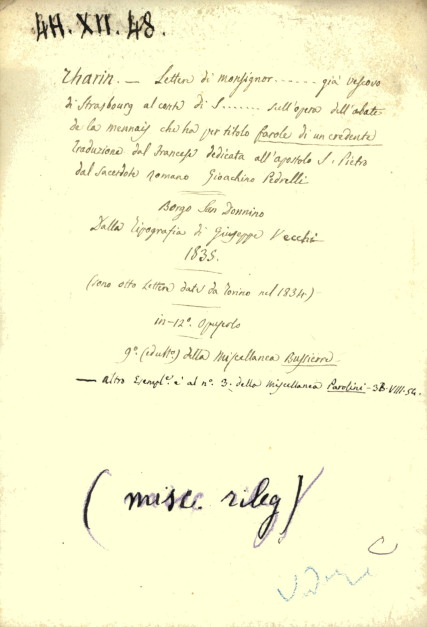 44. XII. 48.
Tharin. — Lettere di monsignor ...... già vescovo
di Strasbourg al conte di S....... sull'opera dell'abate
de la mennais che ha per titolo parole di un credente
Traduzione dal francese dedicata all'apostolo S. Pietro
dal Sacerdote romano Gioachino Pedrelli
Borgo San Donnino
Dalla Tipografia di Giuseppe Vecchi
1835.
(sono otto Lettere date da Torino nel 1834)
in-12° Opuscolo
9° (ed ult°) della Miscellanea Bussicorre.
— altro Esempl.e è al n° 3. della Miscellanea Parolini - 38-VIII-54.
(misc. rileg)
C